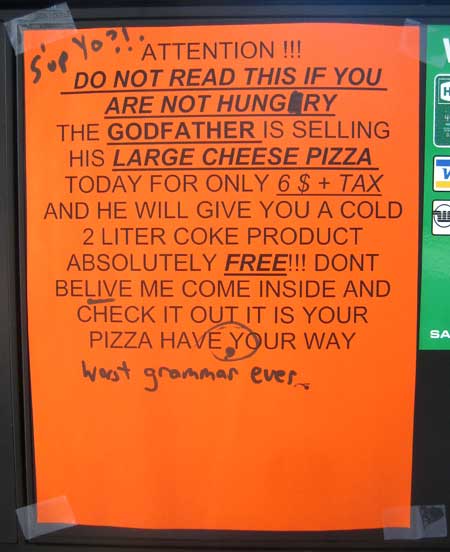 S'up Yo?!.
ATTENTION !!!
DO NOT READ THIS IF YOU
ARE NOT HUNGRY
THE GODFATHER IS SELLING
HIS LARGE CHEESE PIZZA
TODAY FOR ONLY 6 $ + TAX
AND HE WILL GIVE YOU A COLD
2 LITER COKE PRODUCT
ABSOLUTELY FREE!!! DONT
BELIVE ME COME INSIDE AND
CHECK IT OUT IT IS YOUR
PIZZA HAVE YOUR WAY
Worst grammar ever.
SA